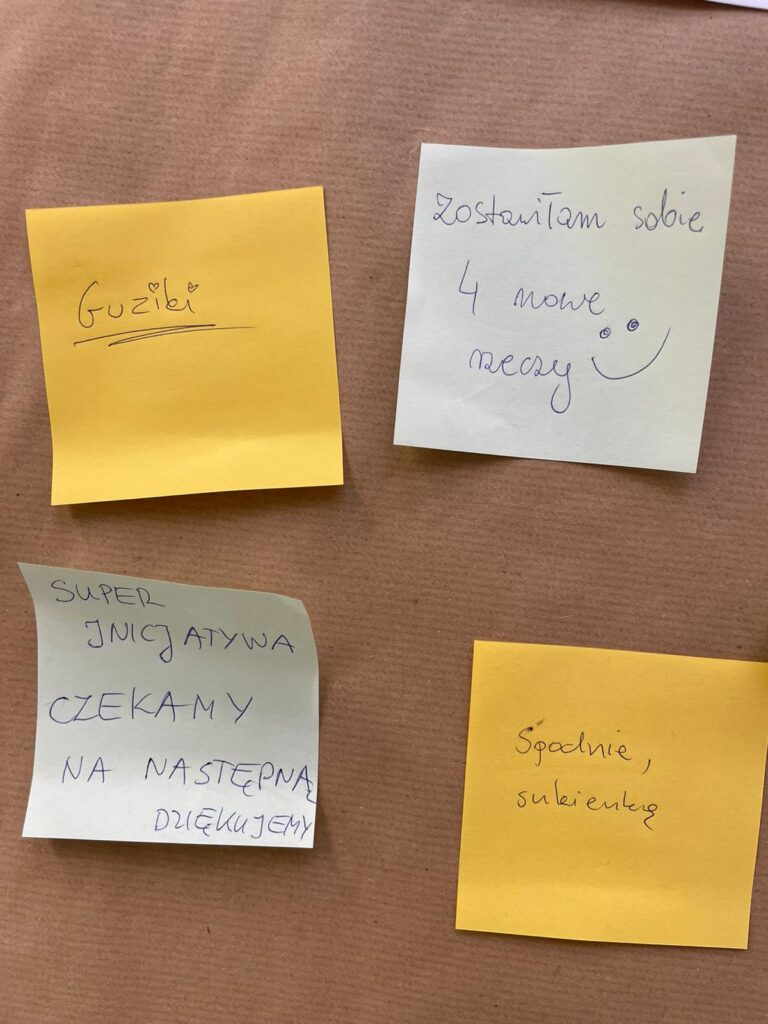 Guziki
Zostawiłam sobie
4 nowe
rzeczy
SUPER
INICJATYWA
CZEKAMY
NA NASTĘPNĄ
DZIĘKUJEMY
Spodnie,
sukienkę